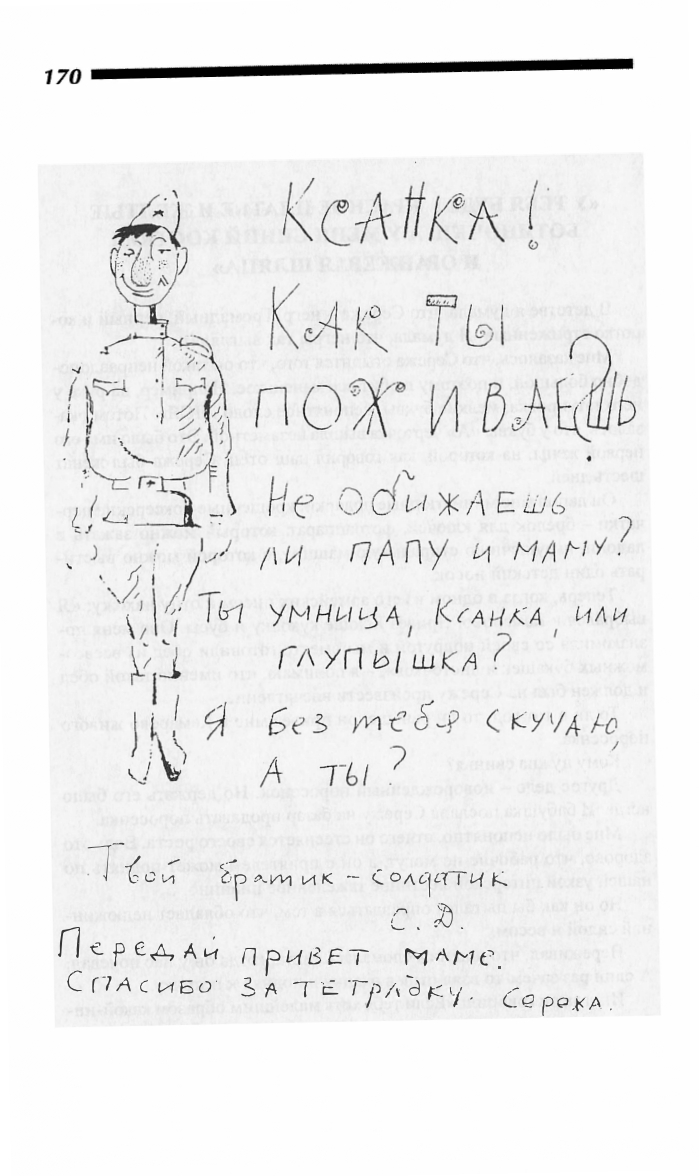 170
КСАНКА!
КАК ТЫ
ПОЖИВАЕШЬ?
НЕ ОБИЖАЕШЬ
ЛИ ПАПУ И МАМУ?
ТЫ УМНИЦА, КСАНКА, ИЛИ
ГЛУПЫШКА?
Я БЕЗ ТЕБЯ СКУЧАЮ
А ТЫ?
Твой братик - солдатик
С. Д.
ПЕРЕДАЙ ПРИВЕТ МАМЕ.
СПАСИБО ЗА ТЕТРАДКУ. Серока.